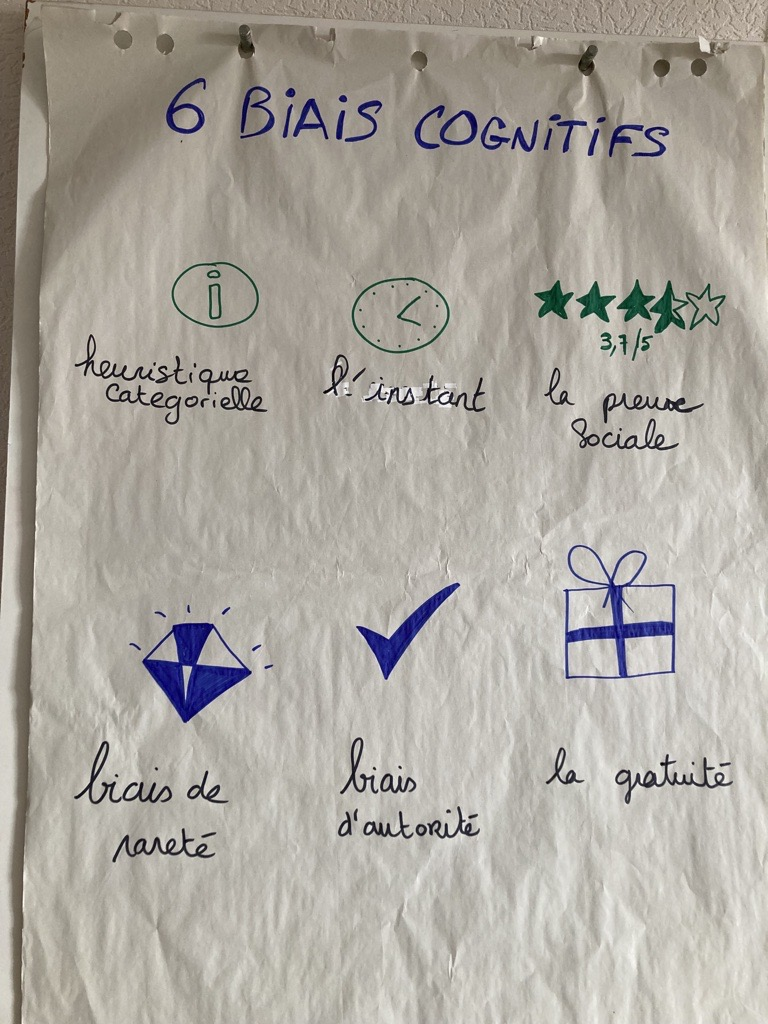 6 BIAIS COGNITIFS
i
3,7/5
heuristique
categorielle
l'instant
la preuve
sociale
biais de
rareté
biais
d'autorité
la gratuité